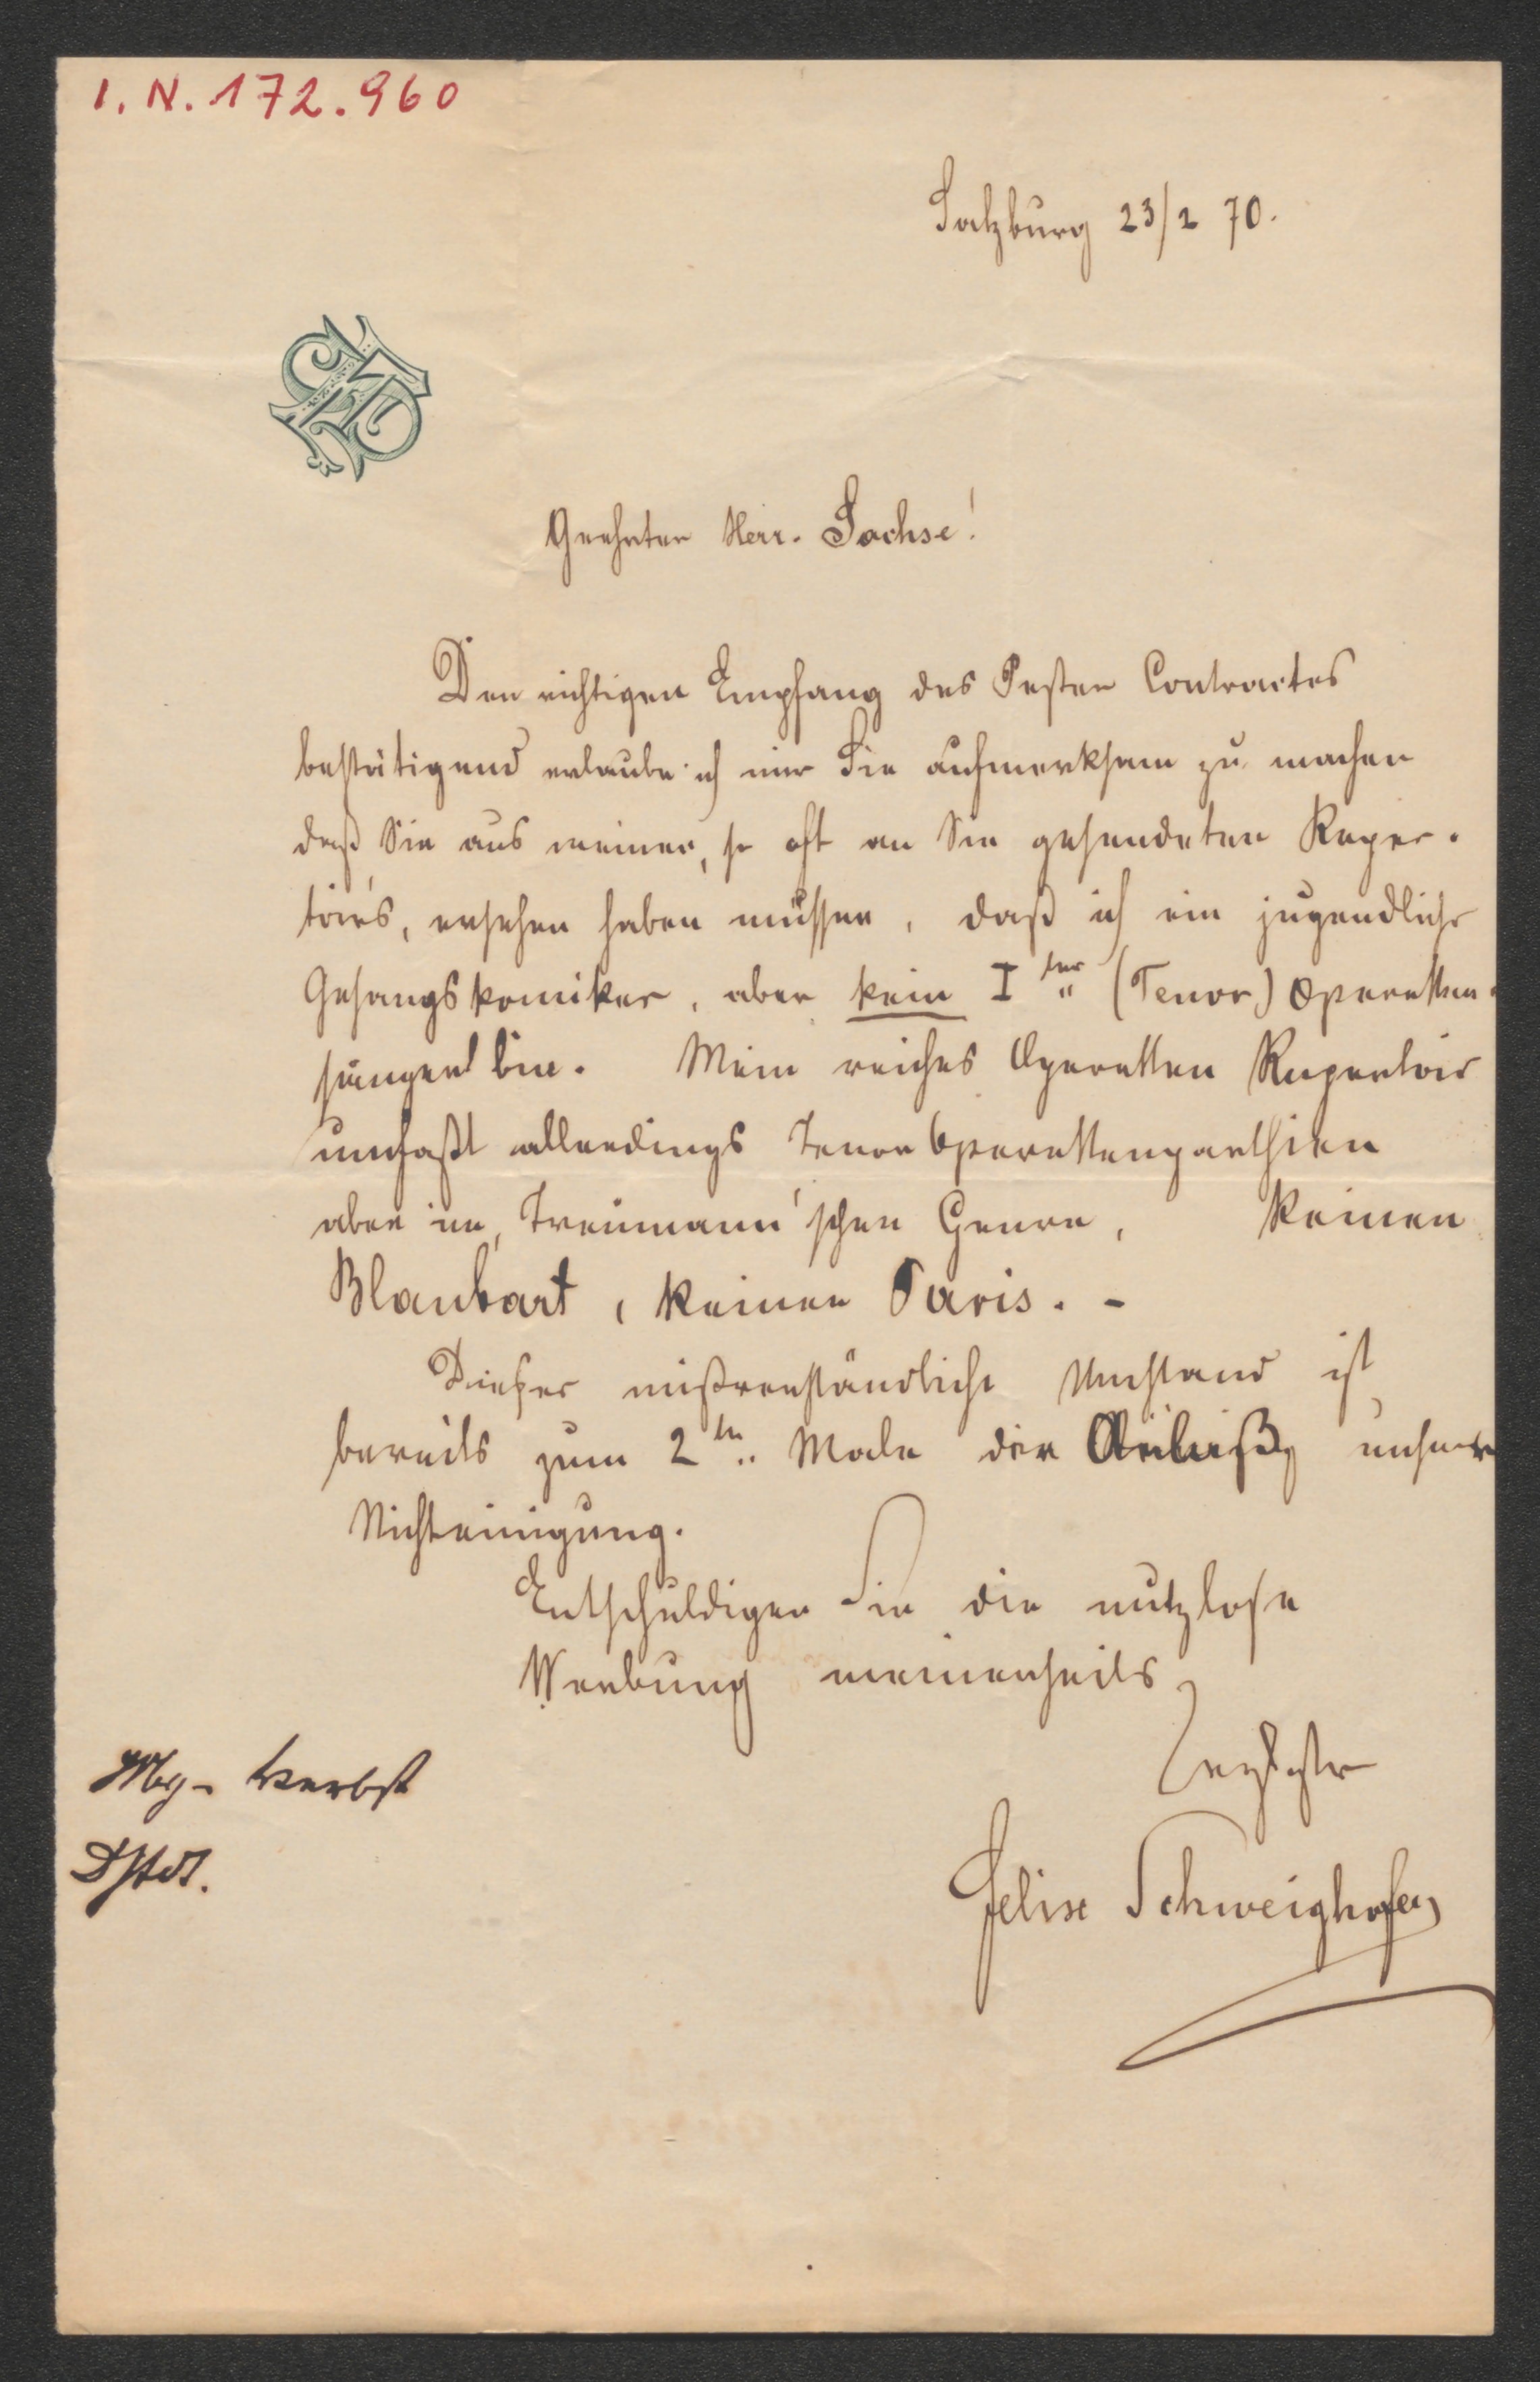 I. N. 172.960
Salzburg 23/2 70.
Geehrter Herr. Sachse!
Den richtigen Empfang des Pester Contractes
bestätigend erlaube ich mir Sie aufmerksam zu machen
daß Sie aus meinen, so oft an Sie gesendeten Reper-
toirs, ersehen haben müssen, daß ich ein jugendlicher
Gesangskomiker, aber kein I ter (Tenor) Operetten-
sänger bin. Mein reiches Operetten Repertoir
umfaßt allerdings Tenor Operettenparthien
aber im, Treumann'schen Genre, keinen
Blaubart, keinen Paris. -
Dieser mißverständliche Umstand ist
bereits zum 2 ten Male der unserer
Nichteinigung.
Entschuldigen Sie die nutzlose
Werbung meinerseits
Felix Schweighofer